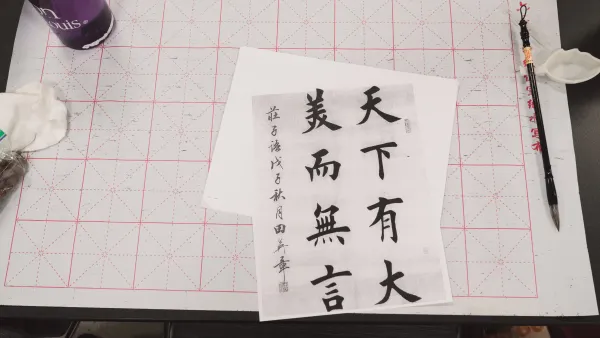 天下有大
美而無言
莊子語戊子秋月田英章
ouis.